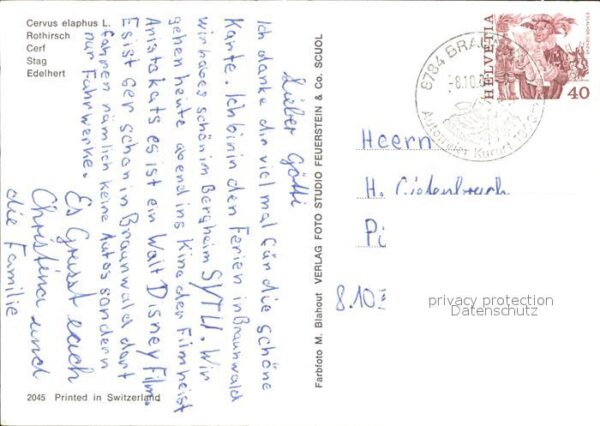 Cervus elaphus L.
Rothirsch
Cerf
Stag
Edelhert
Lieber Götti
Ich danke dir viel mal für die schöne
Karte. Ich bin in den Ferien in Braunwald
wir haben schön im Bergheim SYTU. Wir
gehen heute abend ins Kino der Film heist
Aristokats es ist ein Walt Disney Film.
Es ist ser schon in Braunwald dort
fahren nämlich keine Autos sondern
nur Fuhrwerke.
Es Grüsst euch
Christina und
die Familie
2045 Printed in Switzerland
Farbfoto M. Blahout VERLAG FOTO STUDIO FEUERSTEIN & Co. SCUOL
8784 BRAU
-8.10.
Autofreier Kurort
HELVETIA
40
Heern
H.
Pi
8.10
privacy protection
Datenschutz